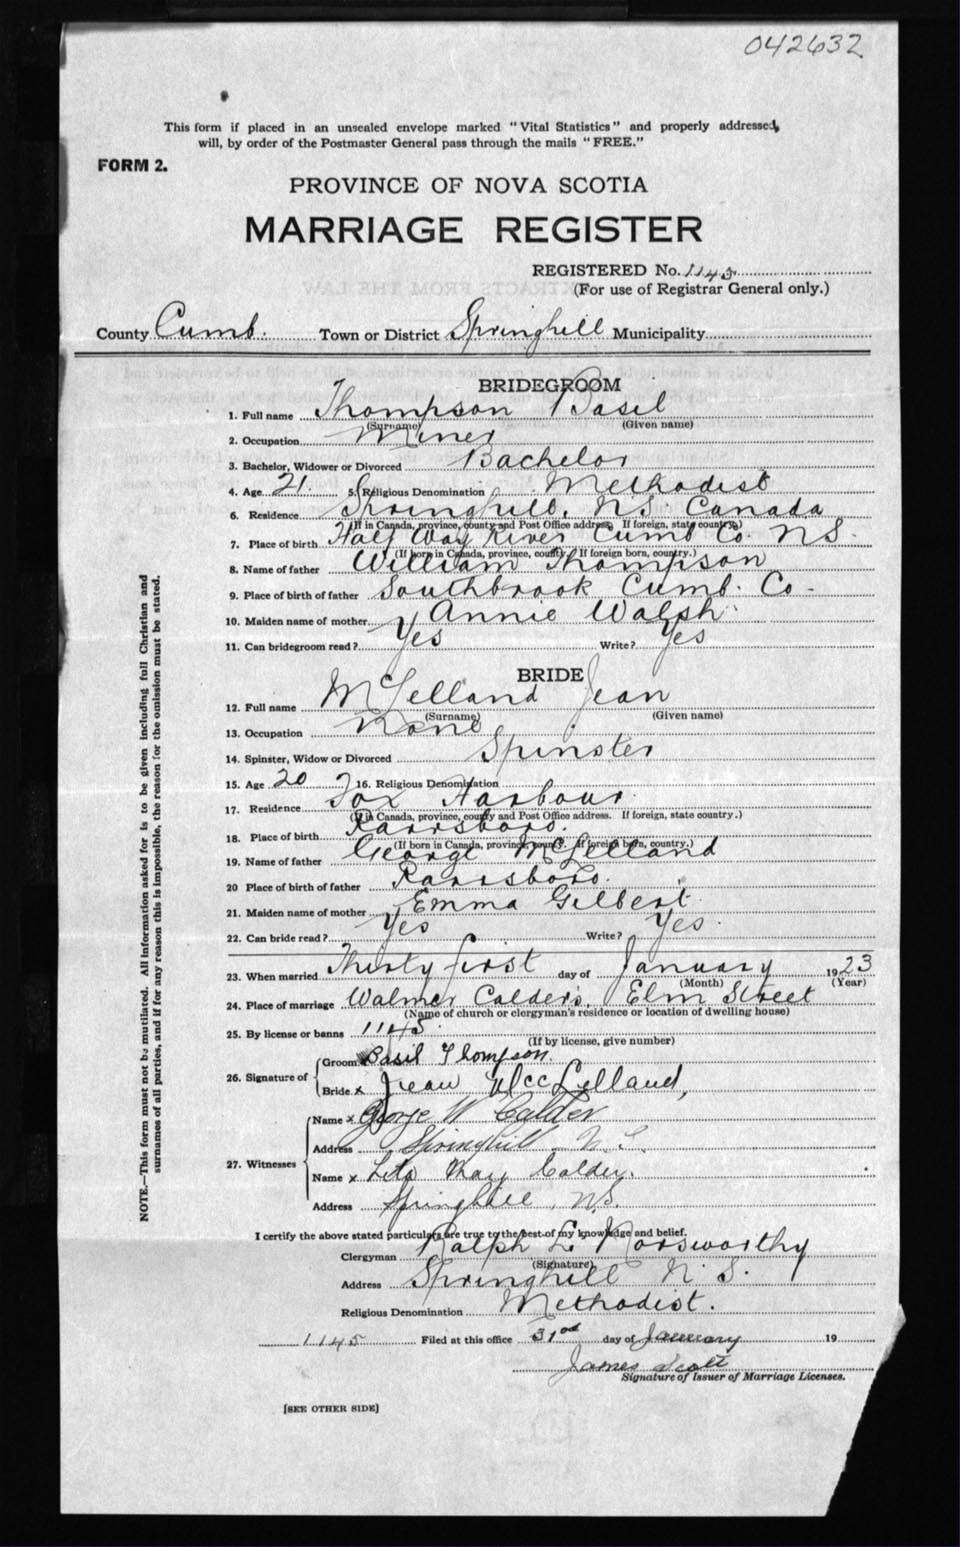 042632
This form if placed in an unsealed envelope marked "Vital Statistics" and properly addressed,
will, by order of the Postmaster General pass through the mails "FREE."
FORM 2.
PROVINCE OF NOVA SCOTIA
MARRIAGE REGISTER
REGISTERED No. 1145
(For use of Registrar General only.)
County Cumb. Town or District Springhill Municipality
BRIDEGROOM
1. Full name Thompson Basil
(Surname) (Given name)
2. Occupation Miner
3. Bachelor, Widower or Divorced Bachelor
4. Age 21. 5. Religious Denomination Methodist
6. Residence Springhill, N.S. Canada
(If in Canada, province, county and Post Office address. If foreign, state country.)
7. Place of birth Half Way River Cumb Co. N S.
(If born in Canada, province, county. If foreign born, country.)
8. Name of father William Thompson
9. Place of birth of father Southbrook Cumb. Co.
10. Maiden name of mother Annie Walsh
11. Can bridegroom read? Yes Write? Yes
BRIDE
12. Full name McLelland Jean
(Surname) (Given name)
13. Occupation None
14. Spinster, Widow or Divorced Spinster
15. Age 20 16. Religious Denomination
17. Residence Fox Harbour
(If in Canada, province, county and Post Office address. If foreign, state country.)
18. Place of birth Parrsboro.
(If born in Canada, province, county. If foreign born, country.)
19. Name of father George McLelland
20 Place of birth of father Parrsboro.
21. Maiden name of mother Emma Gilbert
22. Can bride read? Yes Write? Yes.
23. When married Thirty first day of January 1923
(Month) (Year)
24. Place of marriage Walmer Calder's, Elm Street
(Name of church or clergyman's residence or location of dwelling house)
25. By license or banns 1145.
(If by license, give number)
26. Signature of Groom Basil Thompson.
Bride x Jean McLelland,
27. Witnesses Name x George W Calder
Address Springhill N.S.
Name x May Calder.
Address Springhill, N.S.
I certify the above stated particulars are true to the best of my knowledge and belief.
Clergyman Ralph E. Norsworthy
(Signature)
Address Springhill N. S.
Religious Denomination Methodist.
1145 Filed at this office 31st day of January 19
James Scott
Signature of Issuer of Marriage Licenses.
[SEE OTHER SIDE]
NOTE.—This form must not be mutilated. All information asked for is to be given including full Christian and
surnames of all parties, and if for any reason this is impossible, the reason for the omission must be stated.